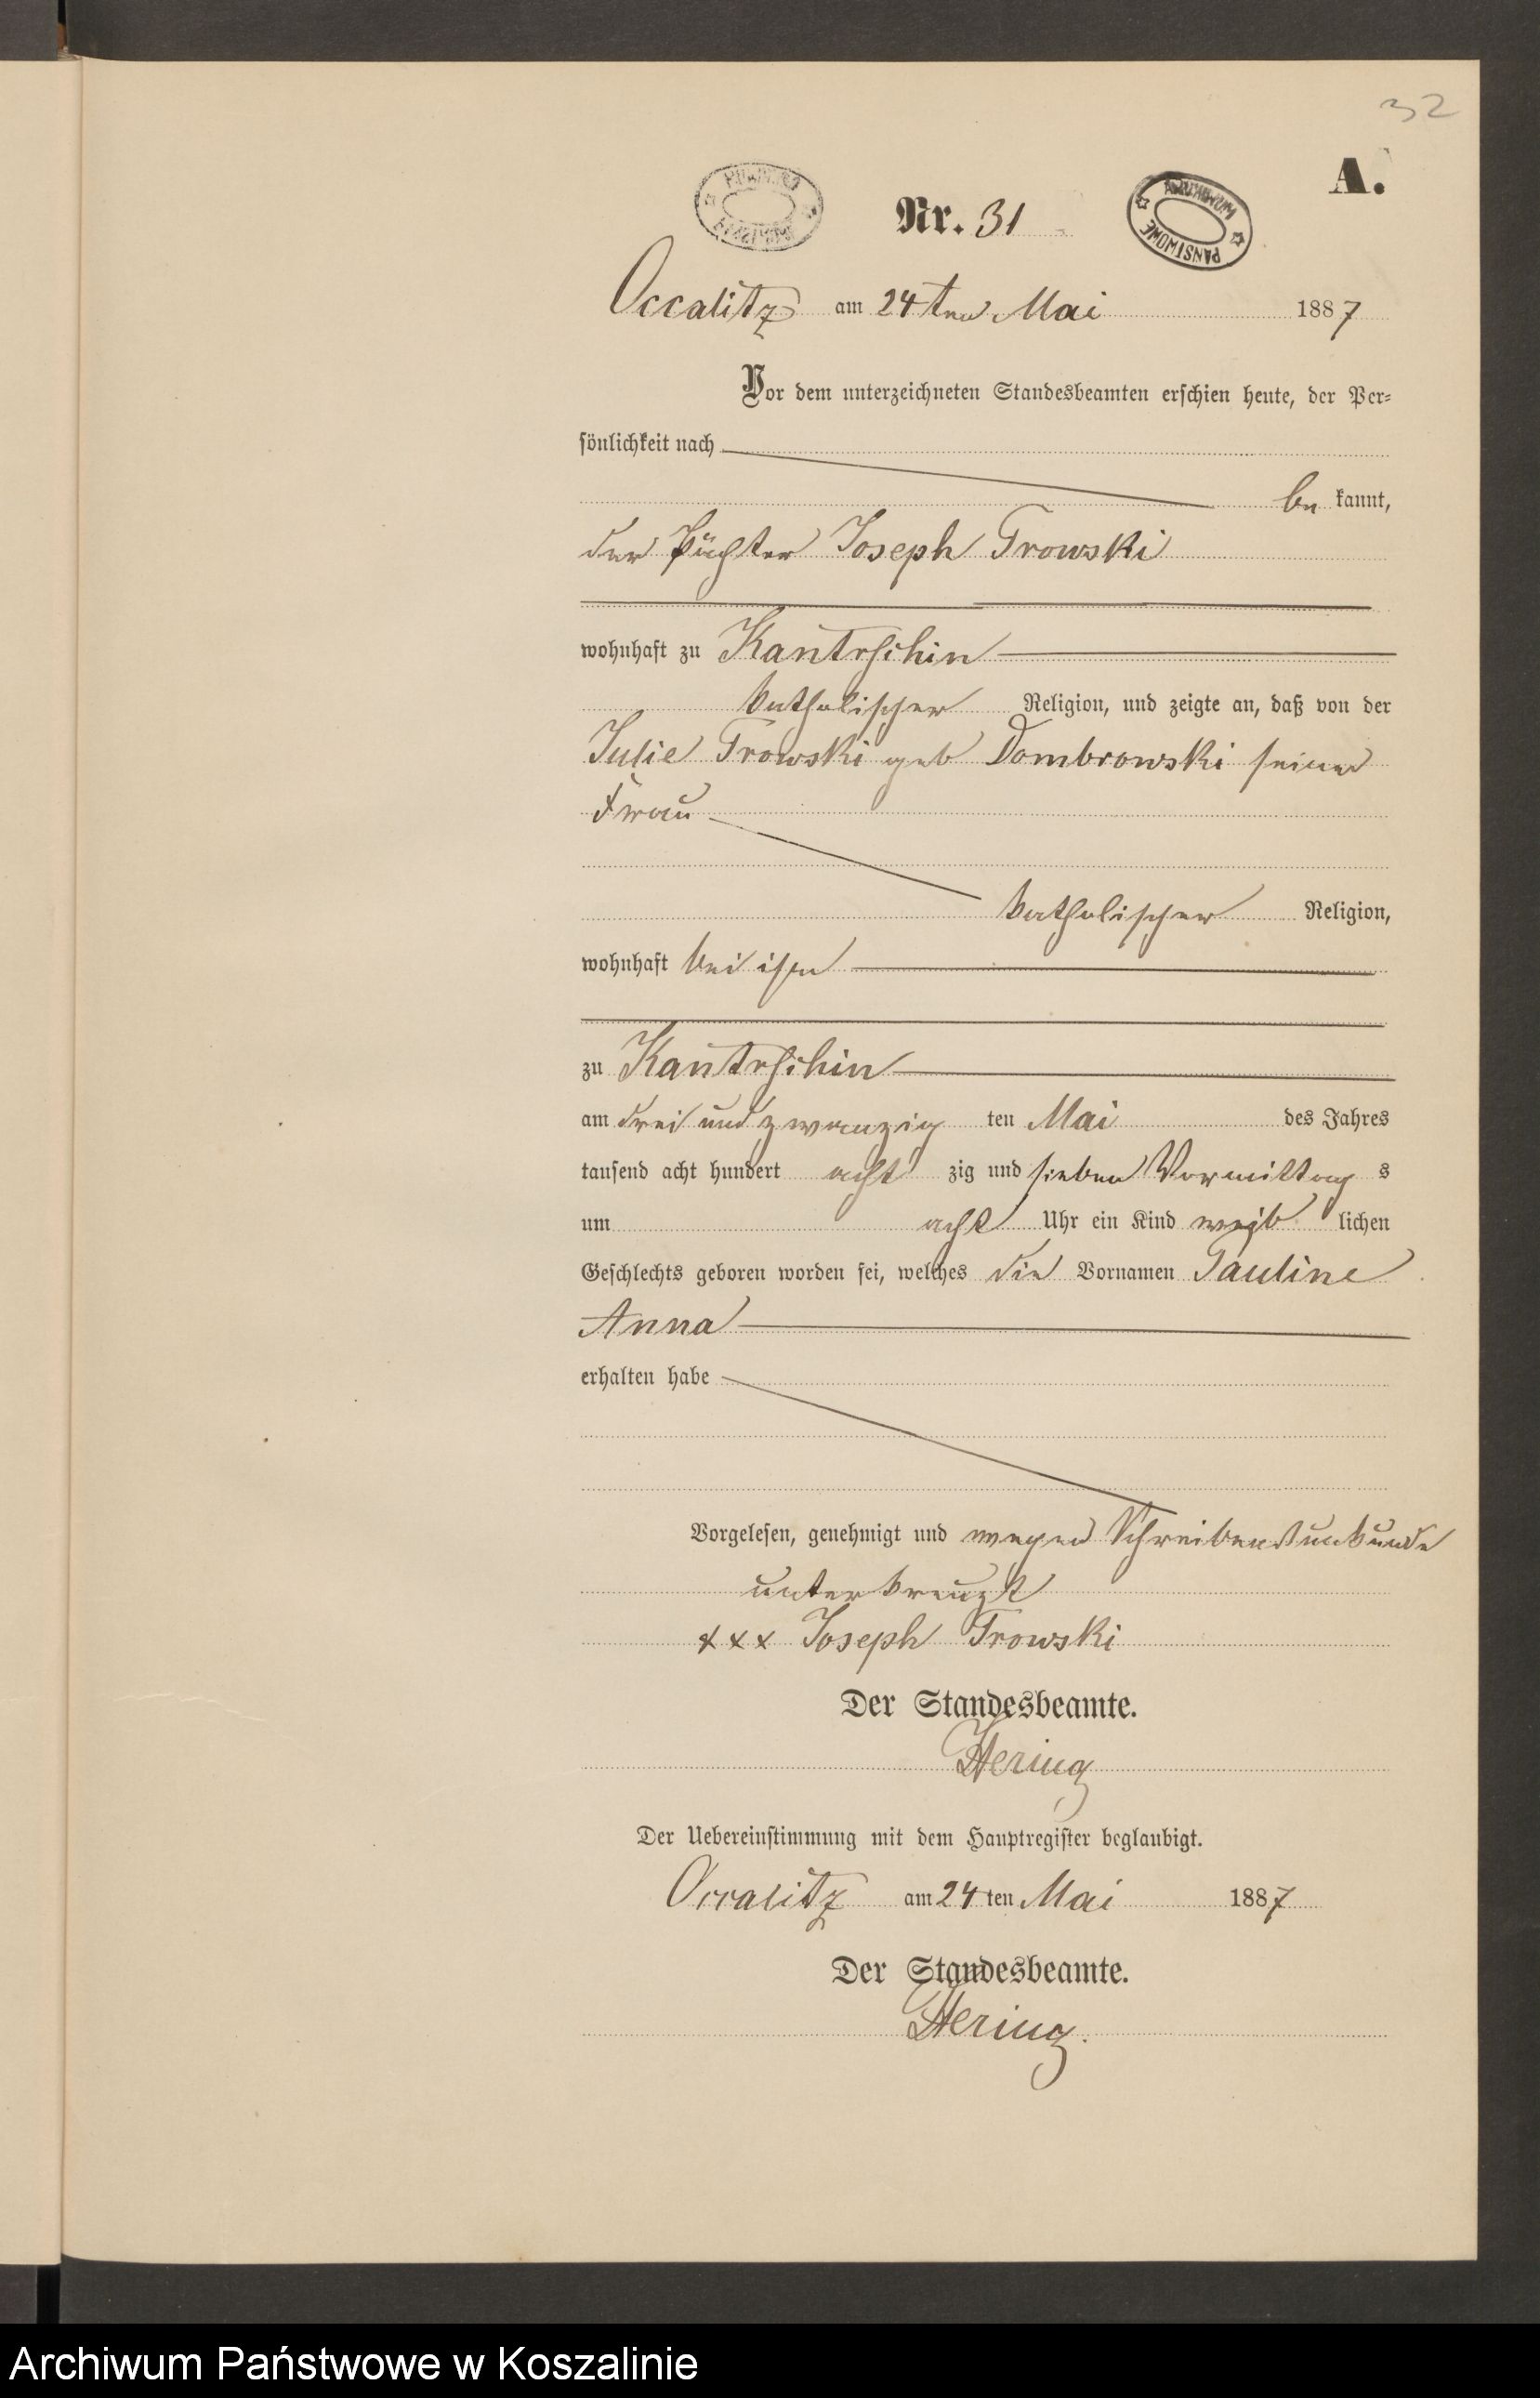 32
A.
Nr. 31
ARCHIWUM PAŃSTWOWE
Occalitz am 24ten Mai 1887
Vor dem unterzeichneten Standesbeamten erschien heute, der Per-
sönlichkeit nach
be kannt,
der Pächter Joseph Trowski
wohnhaft zu Kantrschin
katholischer Religion, und zeigte an, daß von der
Julie Trowski geb Dombrowski seiner
Frau
katholischer Religion,
wohnhaft bei ihm
zu Kantrschin
am drei und zwanzig ten Mai des Jahres
tausend acht hundert acht zig und sieben Vormittag s
um acht Uhr ein Kind weib lichen
Geschlechts geboren worden sei, welches die Vornamen Pauline
Anna
erhalten habe
Vorgelesen, genehmigt und wegen Schreibensunkunde
unterkreuzt
xxx Joseph Trowski
Der Standesbeamte.
Hering
Der Uebereinstimmung mit dem Hauptregister beglaubigt.
Occalitz am 24 ten Mai 1887
Der Standesbeamte.
Hering.
Archiwum Państwowe w Koszalinie